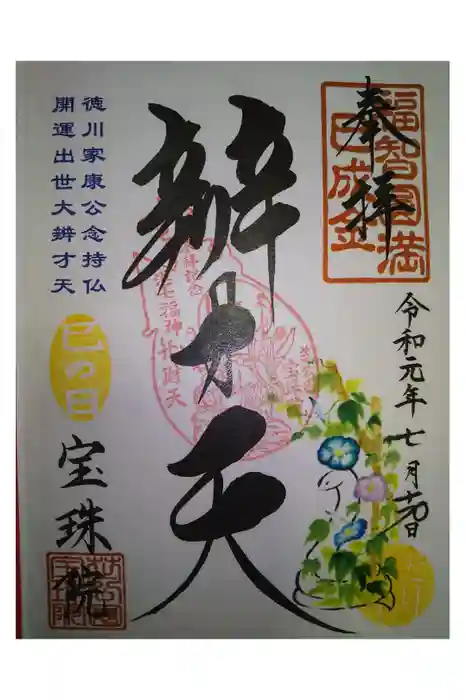 福智圓満
巳成金
奉拝
令和元年七月十九日
辨才天
徳川家康公念持仏
開運出世大辨才天
巳の日
宝珠院